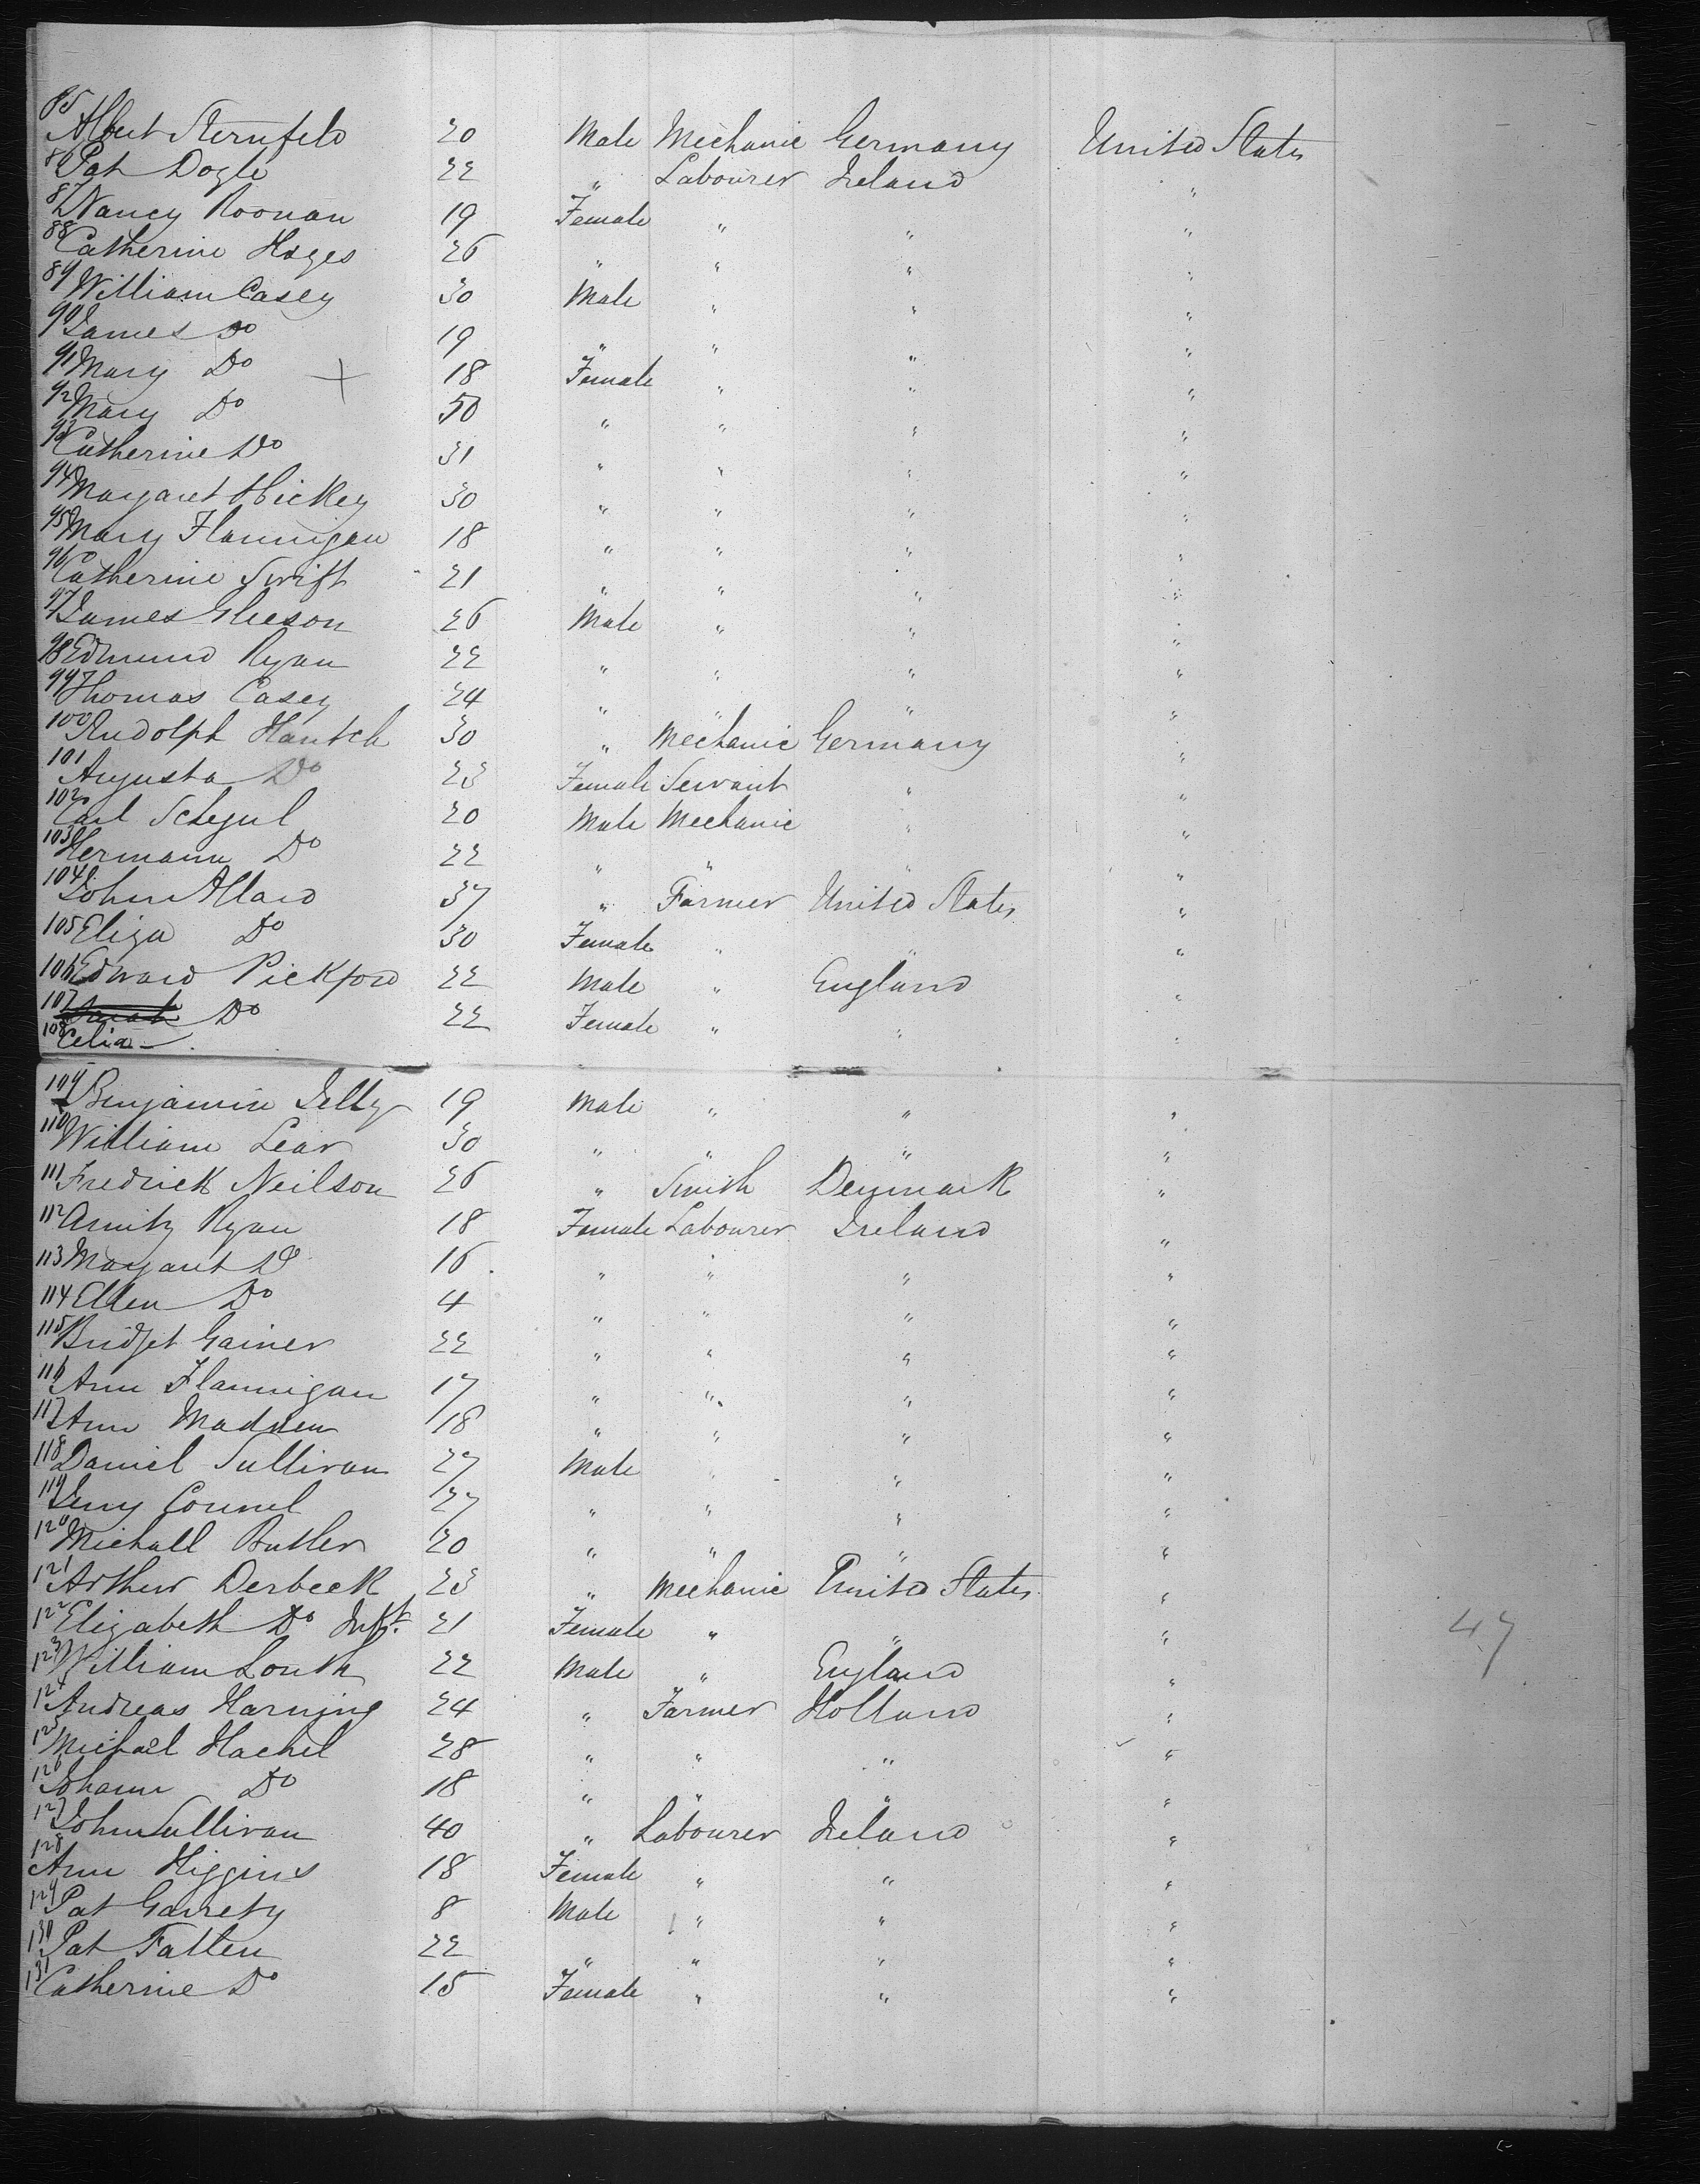 85 Albert Sternfeld 20 Male Mechanic Germany United States
86 Pat Dogle 22 " Labourer Ireland "
87 Nancy Roonan 19 Female " " "
88 Catherine Hages 26 " " " "
89 William Casey 30 Male " " "
90 James Do 19 " " " "
91 Mary Do 18 Female " " "
92 Mary Do 50 " " " "
93 Catherine Do 31 " " " "
94 Margaret Hickey 30 " " " "
95 Mary Flannigan 18 " " " "
96 Catherine Swift 21 " " " "
97 James Gleeson 26 Male " " "
98 Edmund Ryan 22 " " " "
99 Thomas Casey 24 " " " "
100 Rudolph Hantch 30 " Mechanic Germany "
101 Augusta Do 23 Female Servant " "
102 Carl Schegul 20 Male Mechanic " "
103 Hermann Do 22 " " " "
104 John Allard 37 " Farmer United States "
105 Eliza Do 30 Female " " "
106 Edward Pickford 22 Male " England "
107 Sarah Do 22 Female " " "
108 Celia
109 Benjamin Jelly 19 Male " " "
110 William Lear 30 " " " "
111 Fredrick Neilson 26 " Smith Denmark "
112 Ryan 18 Female Labourer Ireland "
113 Margaret Do 16 " " " "
114 Ellen Do 4 " " " "
115 Bridget Gainer 22 " " " "
116 Ann Flannigan 17 " " " "
117 Ann Madden 18 " " " "
118 Daniel Sullivan 27 Male " " "
119 Jerry Connel 27 " " " "
120 Michall Butler 20 " " " "
121 Arthur Derbeck 23 " Mechanic United States "
122 Elizabeth Do Inft. 21 Female " " "
123 William Louth 22 Male " England "
124 Andreas Harning 24 " Farmer Holland "
125 Michael Hachel 28 " " " "
126 Johann Do 18 " " " "
127 John Sullivan 40 " Labourer Ireland "
128 Ann Higgins 18 Female " " "
129 Pat Garrety 8 Male " " "
130 Pat Fallen 22 " " " "
131 Catherine Do 15 Female " " "
47